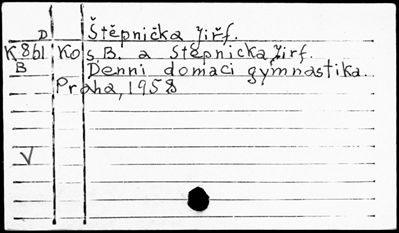 D Štěpnička Jirf.
K861 Kos, B. a Stepnicka, Jirf.
B Denni domaci gymnastika.
Praha, 1958
V